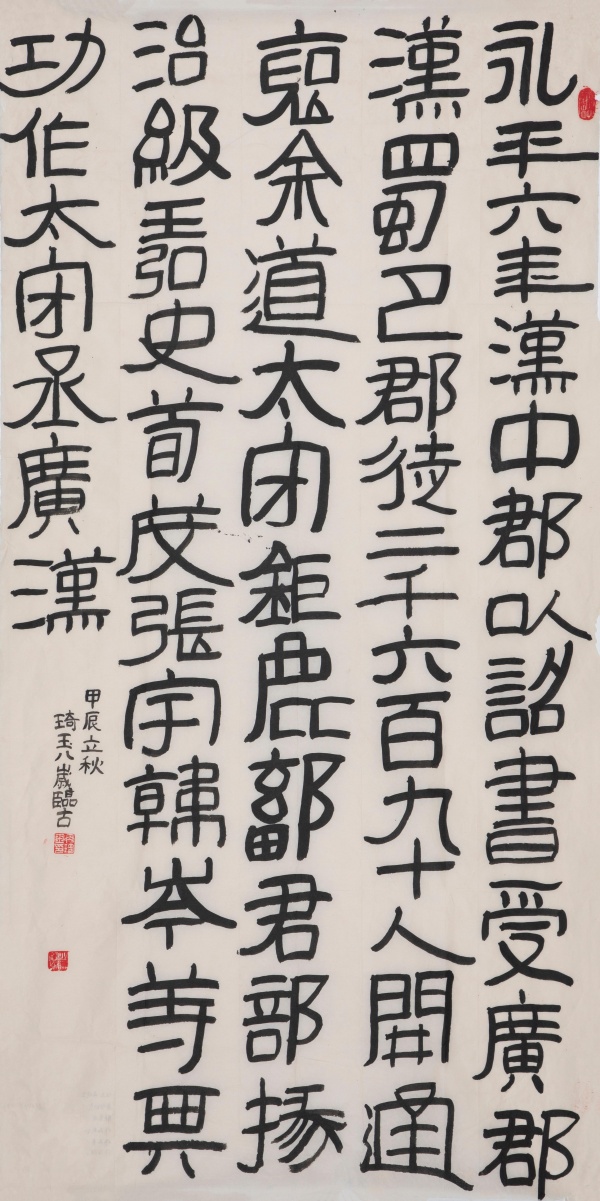 永平六年漢中郡以詔書受廣郡
漢蜀巴郡徒二千六百九十人開通
褒余道太守鉅鹿鄐君部掾
治級王弘史荀茂張宇韓岑等興
功作太守丞廣漢
甲辰立秋
琦玉八歲臨古